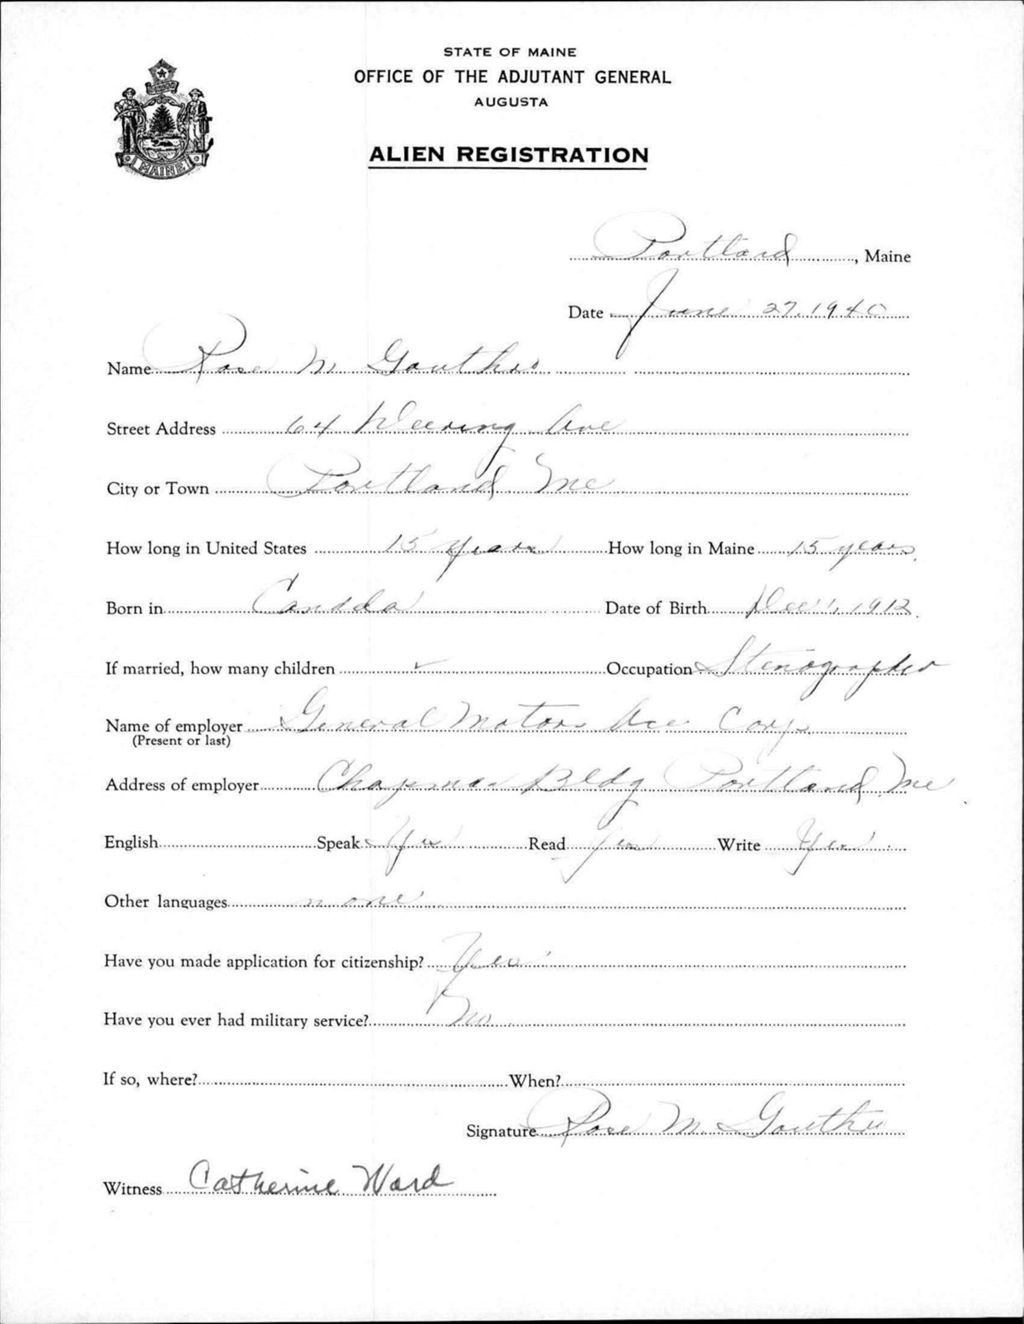 STATE OF MAINE
OFFICE OF THE ADJUTANT GENERAL
AUGUSTA
MAINE
ALIEN REGISTRATION
Portland, Maine
Date June 27, 1940
Name Rose M
Street Address 64 Deering Ave
City or Town Portland Me
How long in United States 15 years How long in Maine 15 years
Born in Canada Date of Birth Dec 1, 1912
If married, how many children ✓ Occupation Stenographer
Name of employer General Motors Acc Corp
(Present or last)
Address of employer Chapman Bldg Portland, Me
English Speak Yes Read Yes Write Yes
Other languages none
Have you made application for citizenship? Yes
Have you ever had military service? No
If so, where? When?
Signature Rose M
Witness Catherine Ward